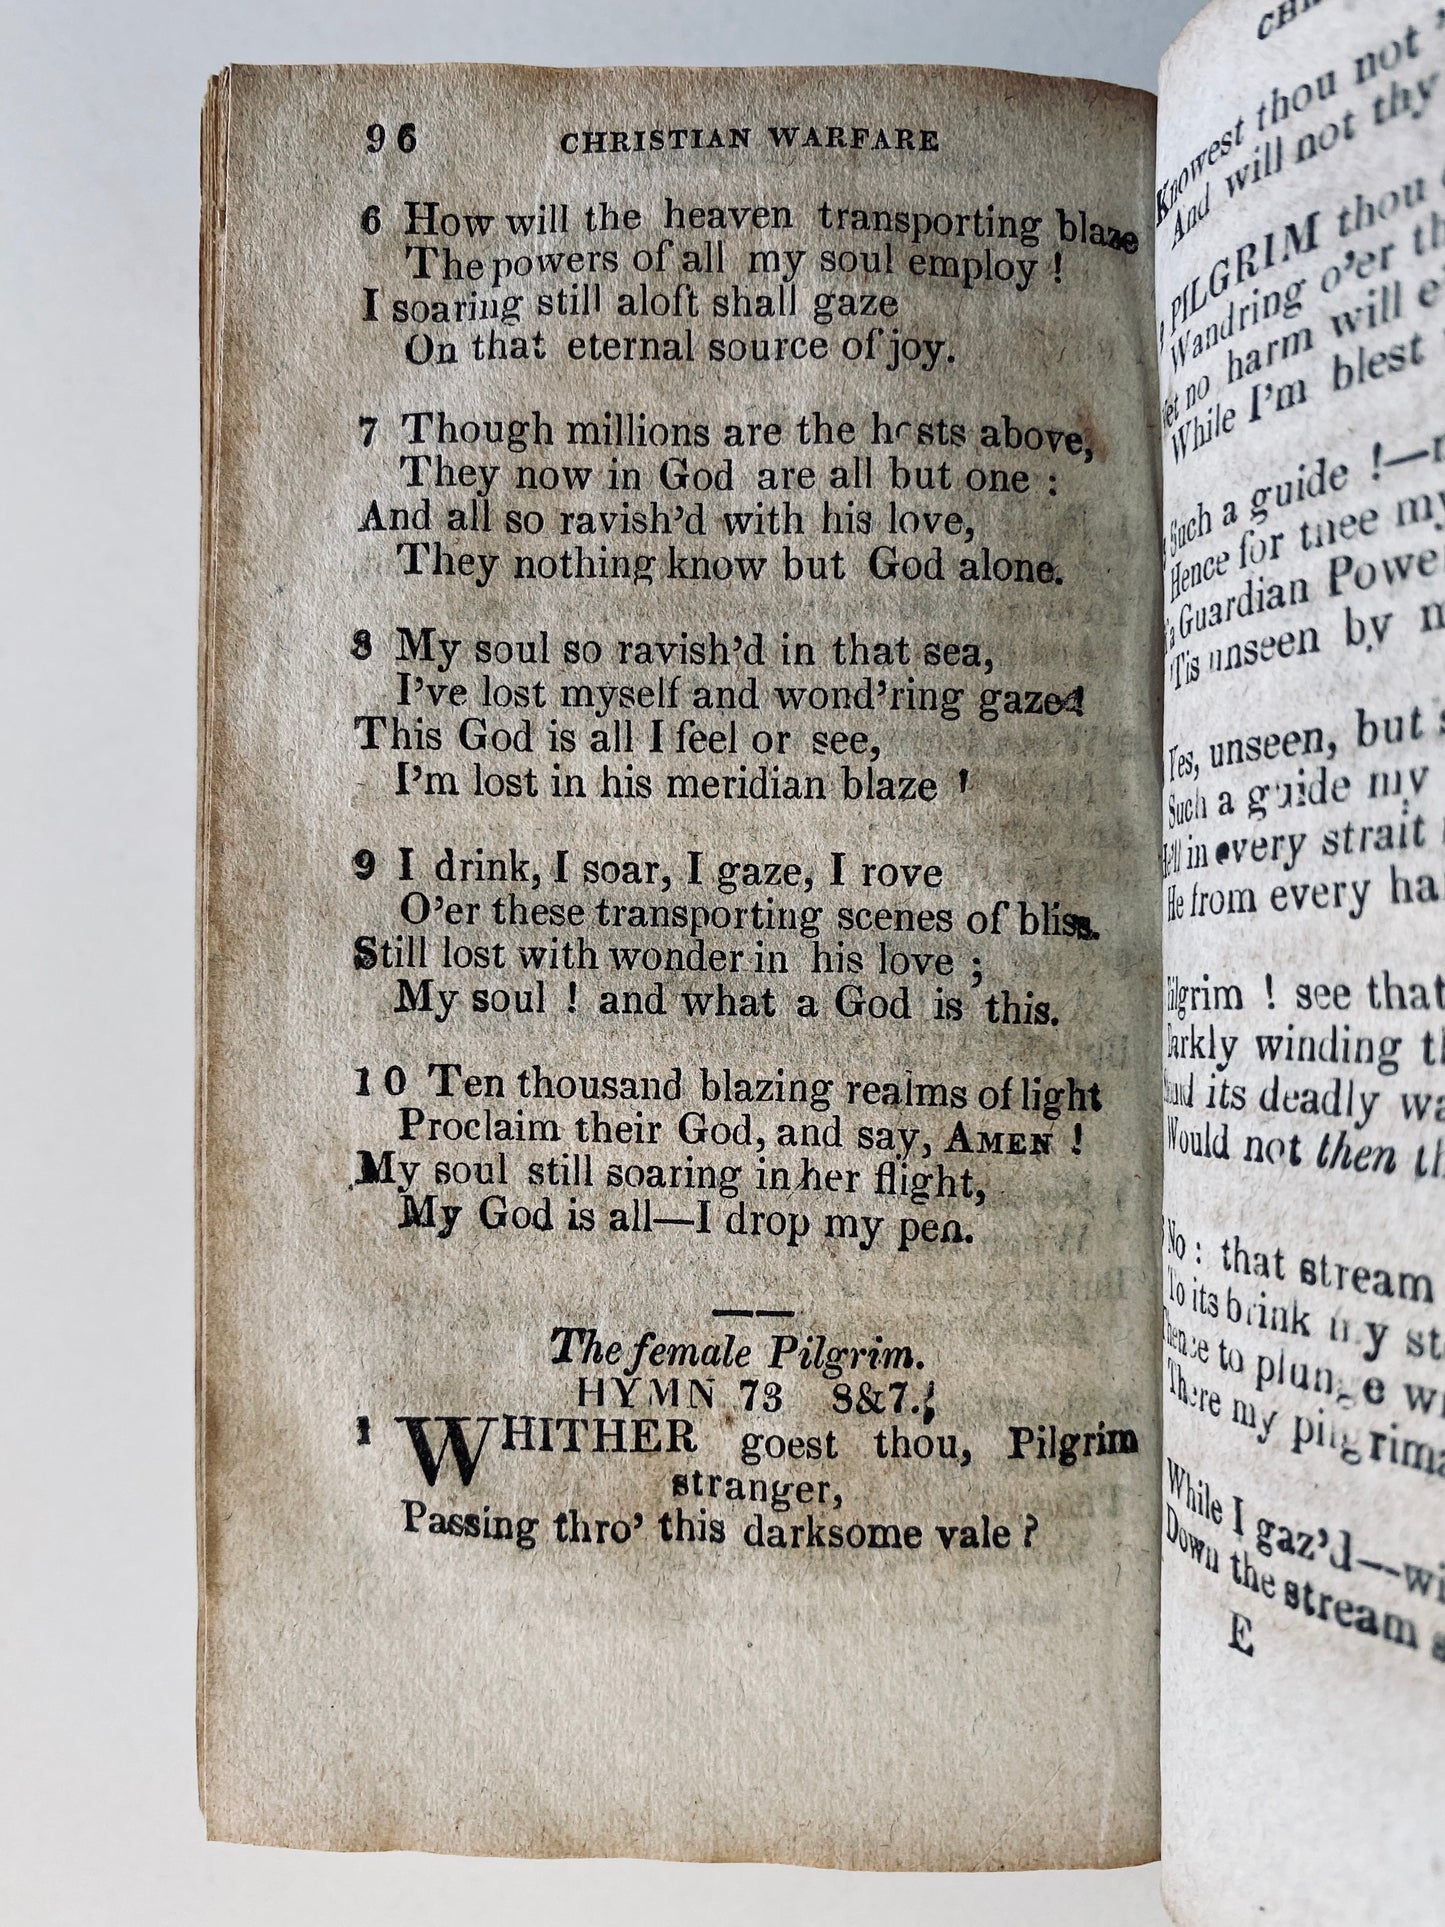 96 CHRISTIAN WARFARE
6 How will the heaven transporting blaze
The powers of all my soul employ !
I soaring still aloft shall gaze
On that eternal source of joy.
7 Though millions are the hosts above,
They now in God are all but one :
And all so ravish'd with his love,
They nothing know but God alone.
8 My soul so ravish'd in that sea,
I've lost myself and wond'ring gazed
This God is all I feel or see,
I'm lost in his meridian blaze !
9 I drink, I soar, I gaze, I rove
O'er these transporting scenes of bliss.
Still lost with wonder in his love ;
My soul ! and what a God is this.
10 Ten thousand blazing realms of light
Proclaim their God, and say, AMEN !
My soul still soaring in her flight,
My God is all—I drop my pen.
The female Pilgrim.
HYMN 73 8&7.
1 WHITHER goest thou, Pilgrim
stranger,
Passing thro' this darksome vale ?
Knowest thou not
And will not thy
PILGRIM thou
Wandring o'er
Yet no harm will
While I'm blest
Such a guide !—
Hence for thee my
a Guardian
'Tis unseen by
Yes, unseen, but
Such a guide my
He'll in every strait
He from every
Pilgrim ! see that
Darkly winding
and its deadly
Would not then
No : that stream
To its brink my
Thence to plunge
There my
While I gaz'd—
Down the stream
E